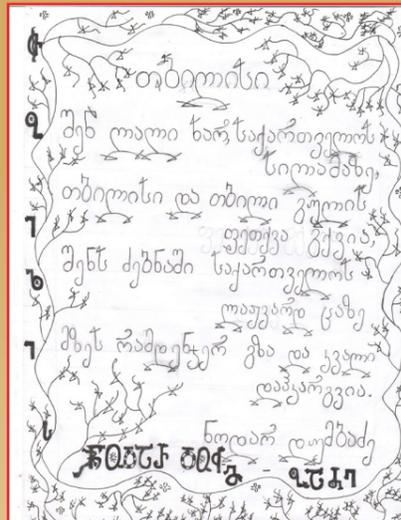 თბილისი
შენ ლალი ხარ, საქართველოს
სილამაზე,
თბილისი და თბილი გულის
ფეთქვა გქვია,
შენს ძებნაში საქართველოს
ლაჟვარდ ცაზე
მზეს რამდენჯერ გზა და კვალი
დაჰკარგვია.
ნოდარ დუმბაძე